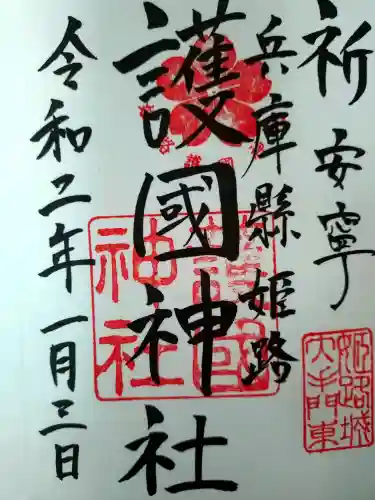 祈 安寧
兵庫縣姫路
護國神社
令和二年一月三日
護國
神社
姫路城
大手門東